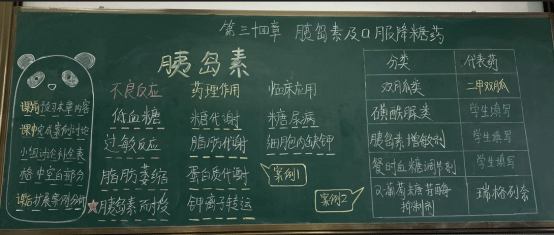 第三十四章 胰岛素及口服降糖药
课前预习本章内容
课中完成案例讨论
小组讨论补全表
格中空白部分
课后拓展案例分析
胰岛素
不良反应
低血糖
过敏反应
脂肪萎缩
胰岛素耐受
药理作用
糖代谢
脂肪代谢
蛋白质代谢
钾离子转运
临床应用
糖尿病
细胞内缺钾
案例1
案例2
分类 代表药
双胍类 二甲双胍
磺酰脲类 学生填写
胰岛素增敏剂 学生填写
餐时血糖调节剂 学生填写
α-葡萄糖苷酶
抑制剂
瑞格列奈